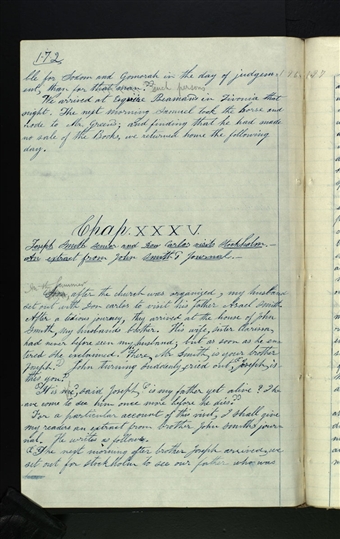 172
ble for Sodom and Gomorah in the day of judgem
ent, than for that man. such persons
We arrived at Esquire Beamans in Livonia that
night. The next morning Samuel took the horse and
rode to Mr Green's, and finding that he had made
no sale of the Books, we returned home the following
day.
Chap. XXXV.
Joseph Smith senior and Don Carlos visit Stockholm
An extract from John Smith's Journal
In the summer
Soon after the church was organized, my husband
set out with Don carlos to visit his father Asael Smith
After a tedious journey, they arrived at the house of John
Smith, my husbands brother. His wife, sister Clarissa,
had never before seen my husband; but as soon as he en
tered she exclaimed "Here, Mr Smith, is your brother
Joseph." John turning suddenly, cried out, "Joseph, is
this you?"
"It is me," said Joseph, "is my father yet alive? I ha
ve come to see him once more before he dies."
For a particular account of this visit, I shall give
my readers an extract from brother John Smith's jour
nal. He writes as follows.
"The next morning after brother Joseph arrived, we
set out for Stockholm to see our father who was